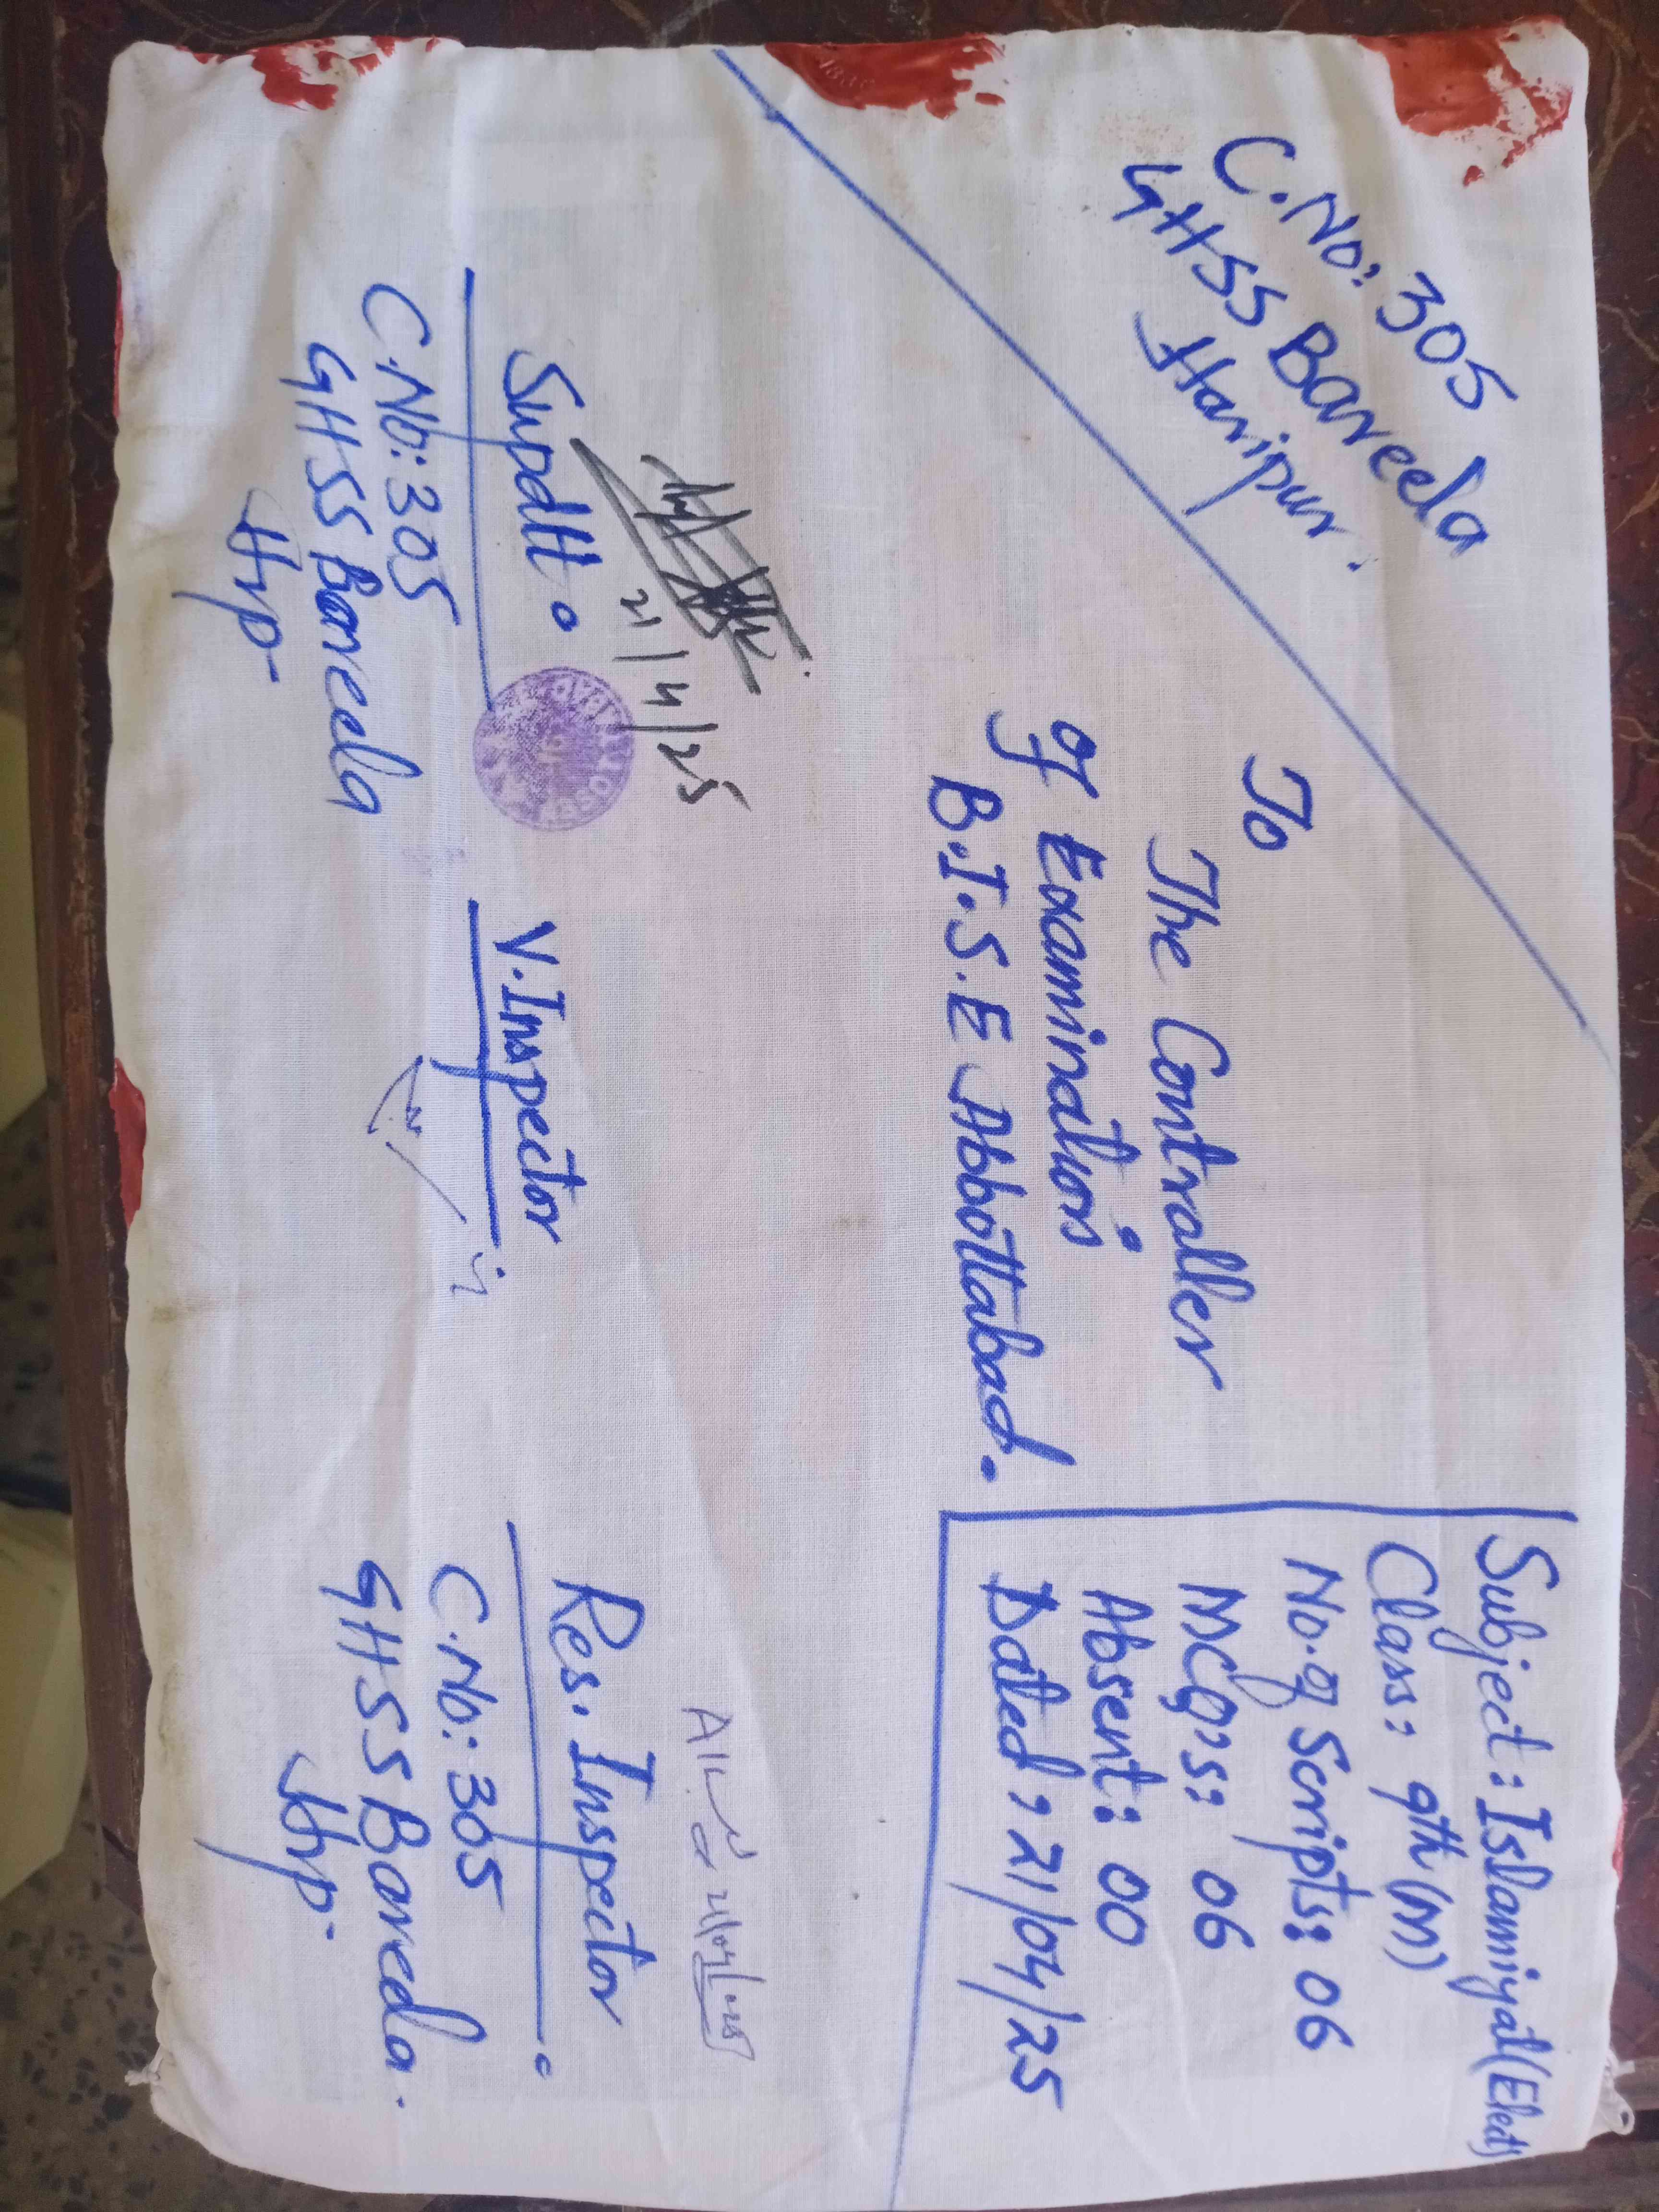 C.No: 305
GHSS Bareela
Haripur.
To
The Controller
of Examinations
B.I.S.E Abbottabad.
Subject: Islamiyat (Elect)
Class: 9th (M)
No. of Scripts: 06
MCQ's: 06
Absent: 00
Dated: 21/04/25
21/4/25
Supdtt:
C.No: 305
GHSS Bareela
Hrp.
V.Inspector
Res. Inspector
C.No: 305
GHSS Bareela.
Hrp.